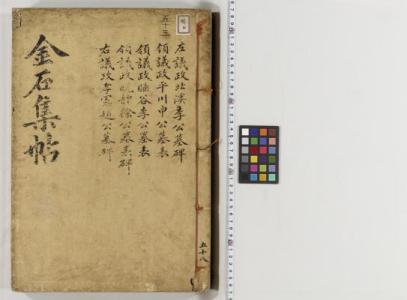 五十三
左議政北溪李公墓碑
領議政平川申公墓表
領議政幽谷李公墓表
領議政晩靜徐公墓表碑
右議政孝憲趙公墓碑
金石集帖
五十八